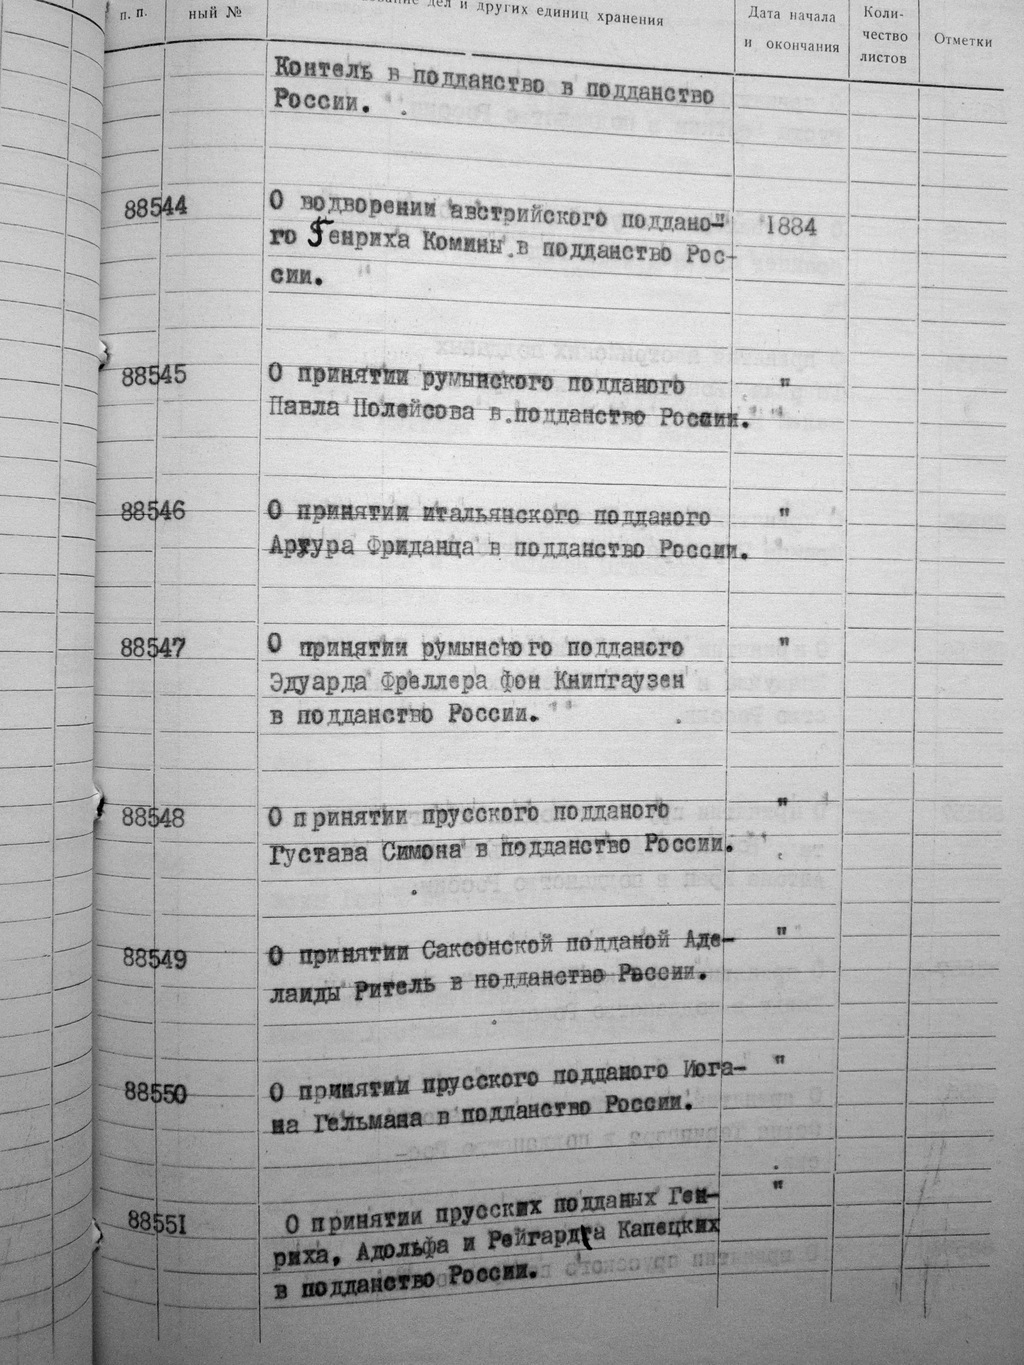 п. п.
ный №
дел и других единиц хранения
Дата начала
и окончания
Коли-
чество
листов
Отметки
Контель в подданство в подданство
России.
88544
О водворении австрийского поддано-
го Генриха Комины в подданство Рос-
сии.
1884
88545
О принятии румынского подданого
Павла Полейсова в подданство России.
"
88546
О принятии итальянского подданого
Артура Фриданца в подданство России.
"
88547
О принятии румынского подданого
Эдуарда Фреллера фон Книпгаузен
в подданство России.
"
88548
О принятии прусского подданого
Густава Симона в подданство России.
"
88549
О принятии Саксонской подданой Аде-
лаиды Ритель в подданство России.
"
88550
О принятии прусского подданого Иога-
на Гельмана в подданство России.
"
88551
О принятии прусских подданых Ген-
риха, Адольфа и Рейгардта Капецких
в подданство России.
"